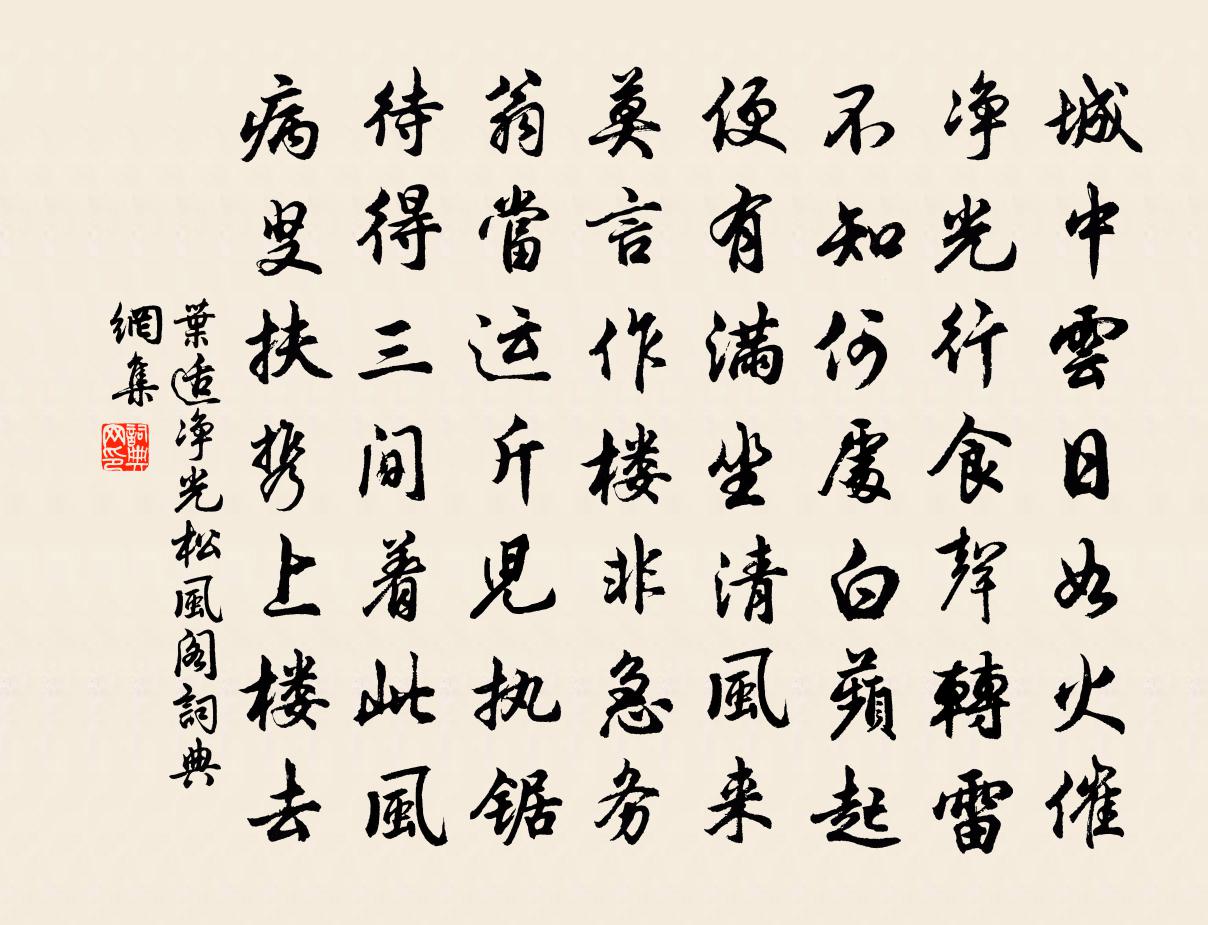 城中雲日如火催
净光行食聲轉雷
不知何處白蘋起
便有滿坐清風来
莫言作楼非急务
翁當运斤児执锯
待得三间着此風
病叟扶携上楼去
葉适净光松風阁詞典
網集
詞典网印